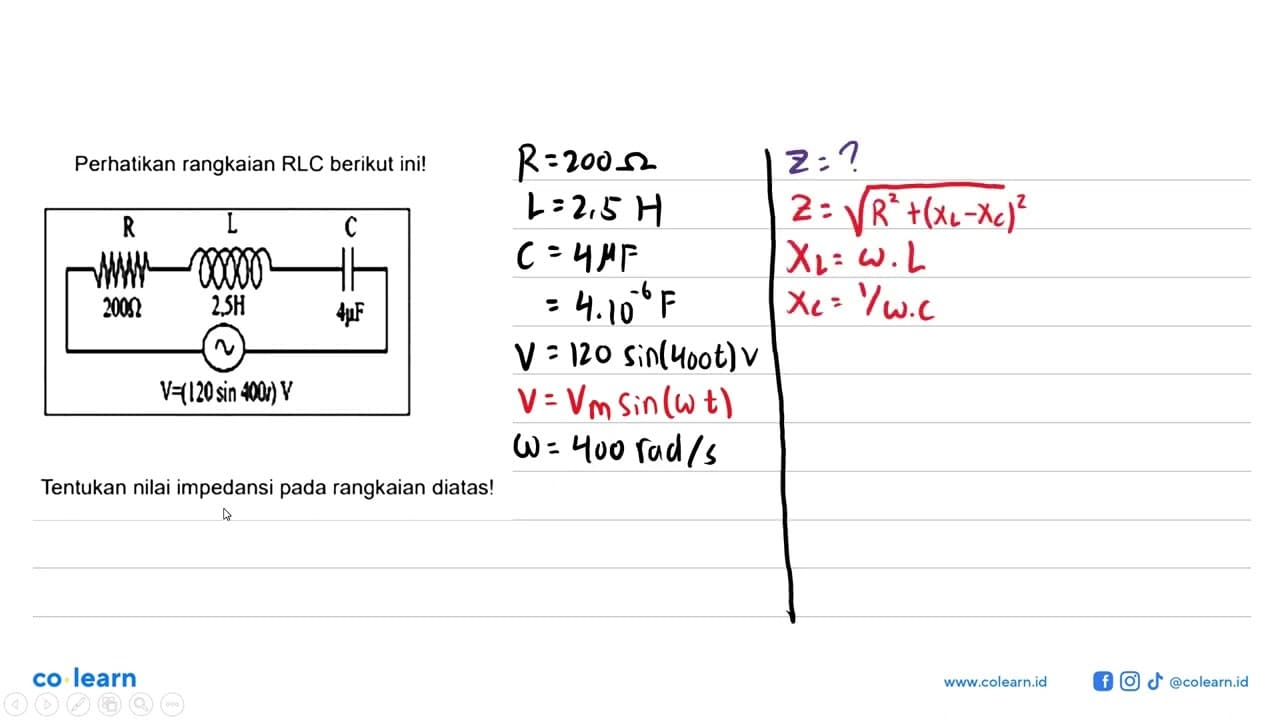 Perhatikan rangkaian RLC berikut ini!
R
L
C
200Ω
2,5H
4μF
V=(120 sin 400t) V
Tentukan nilai impedansi pada rangkaian diatas!
R = 200 Ω
L = 2,5 H
C = 4 μF
= 4.10⁻⁶ F
V = 120 sin(400t) V
V = Vm sin(ωt)
ω = 400 rad/s
Z = ?
Z = √R² + (XL - XC)²
XL = ω.L
XC = 1/ω.C
co·learn
www.colearn.id
@colearn.id